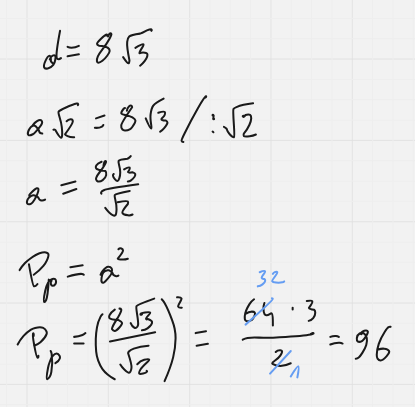 d = 8√3
a√2 = 8√3 / :√2
a = 8√3/√2
Pp = a²
Pp = (8√3/√2)² = 64 · 3/2 = 96
32
1